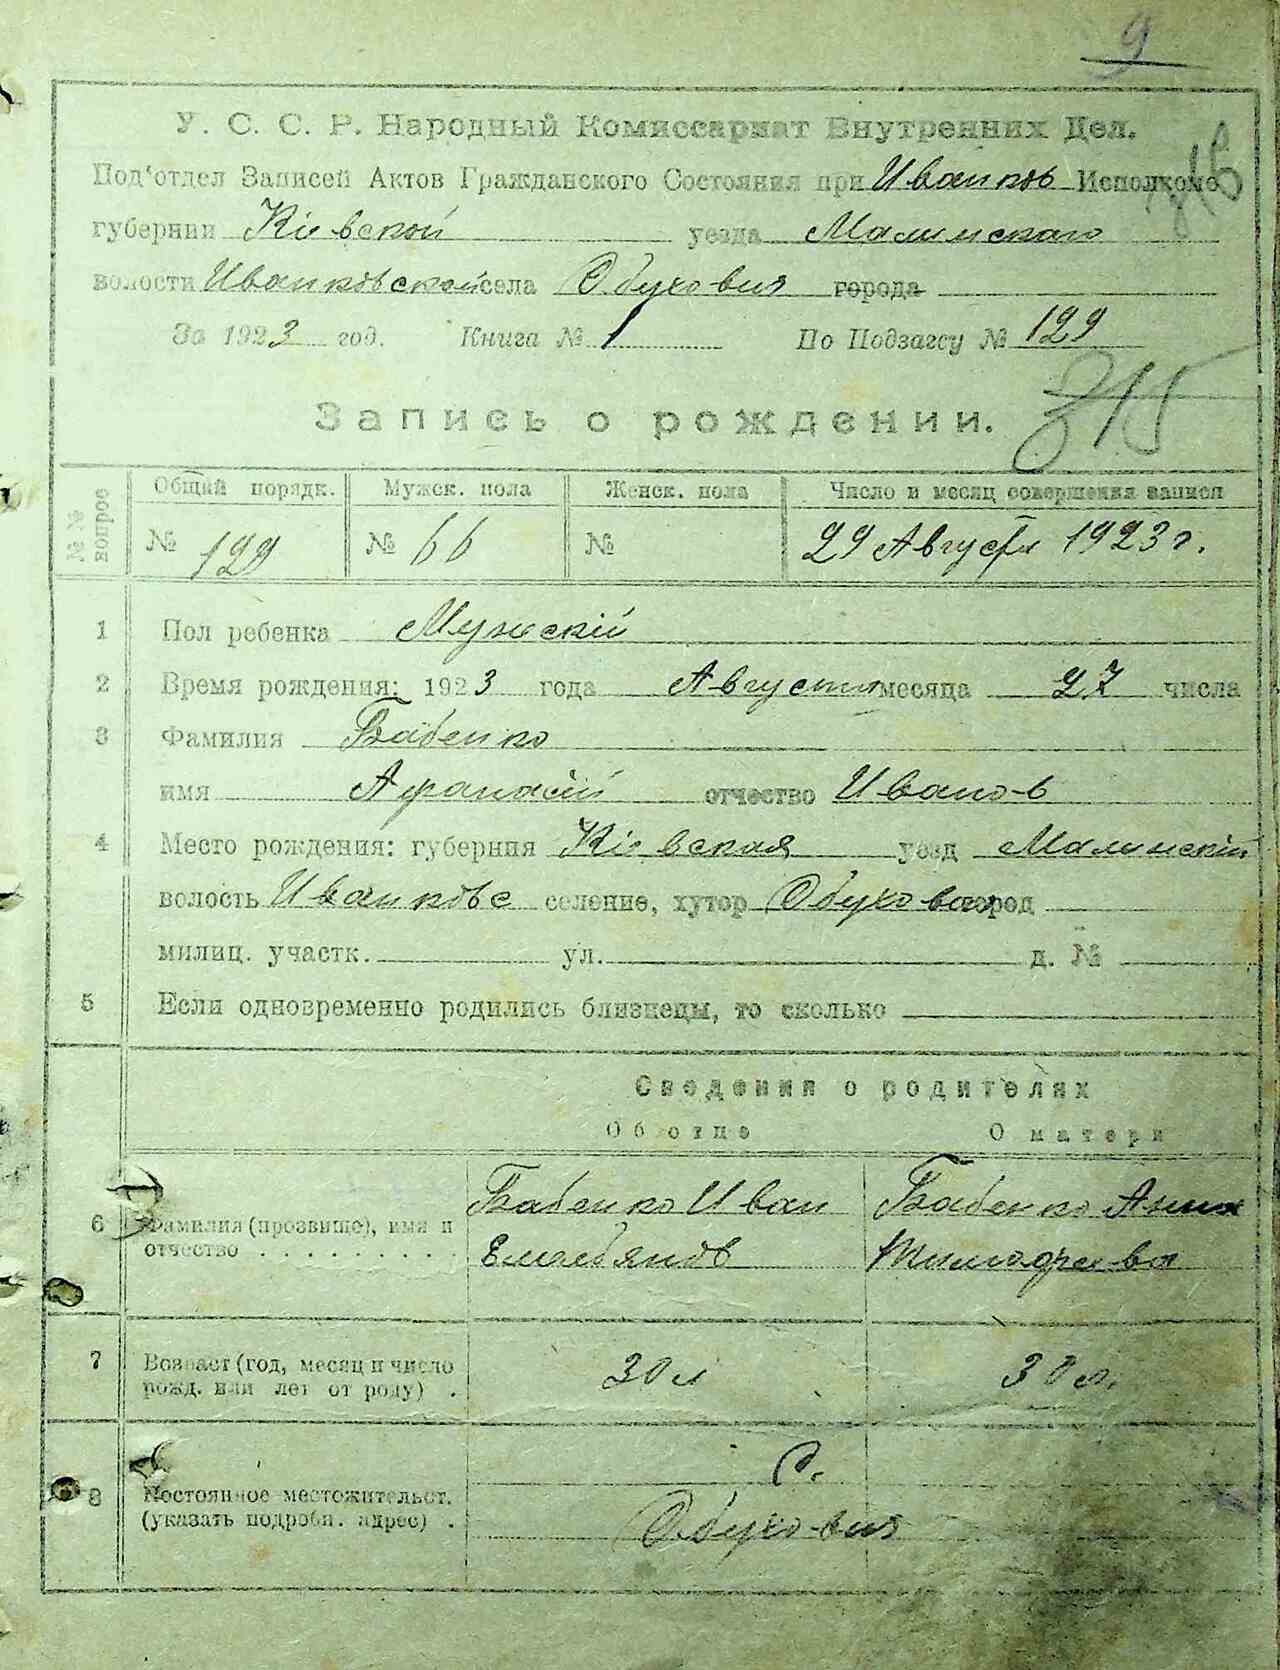 9
У. С. С. Р. Народный Комиссариат Внутренних Дел.
Под'отдел Записей Актов Гражданского Состояния при Иванков Исполкоме
губернии Кіевской уезда Малинскаго
волости Иванковской села Обуховия города
За 1923 год. Книга № 1 По Подзагсу № 129
315
Запись о рождении.
№№ вопрос Общий порядк. Мужск. пола Женск. пола Число и месяц совершения записи
№ 129 № 66 № 29 Августа 1923 г.
1 Пол ребенка Мужскій
2 Время рождения: 1923 года Августа месяца 27 числа
3 Фамилия Бабенко
имя Афанасій отчество Иванов
4 Место рождения: губерния Кіевская уезд Малинскій
волость Иванковс селение, хутор Обуховия город
милиц. участк. ул. д. №
5 Если одновременно родились близнецы, то сколько
Сведения о родителях
Об отце О матери
Бабенко Иван Бабенко Анна
6 Фамилия (прозвище), имя и
отчество . . . . . . . . . . Емельянов Тимофеева
7 Возраст (год, месяц и число 30 л 30 л.
рожд. или лет от роду) .
С.
8 Постоянное местожительст.
(указать подробн. адрес) . Обуховия